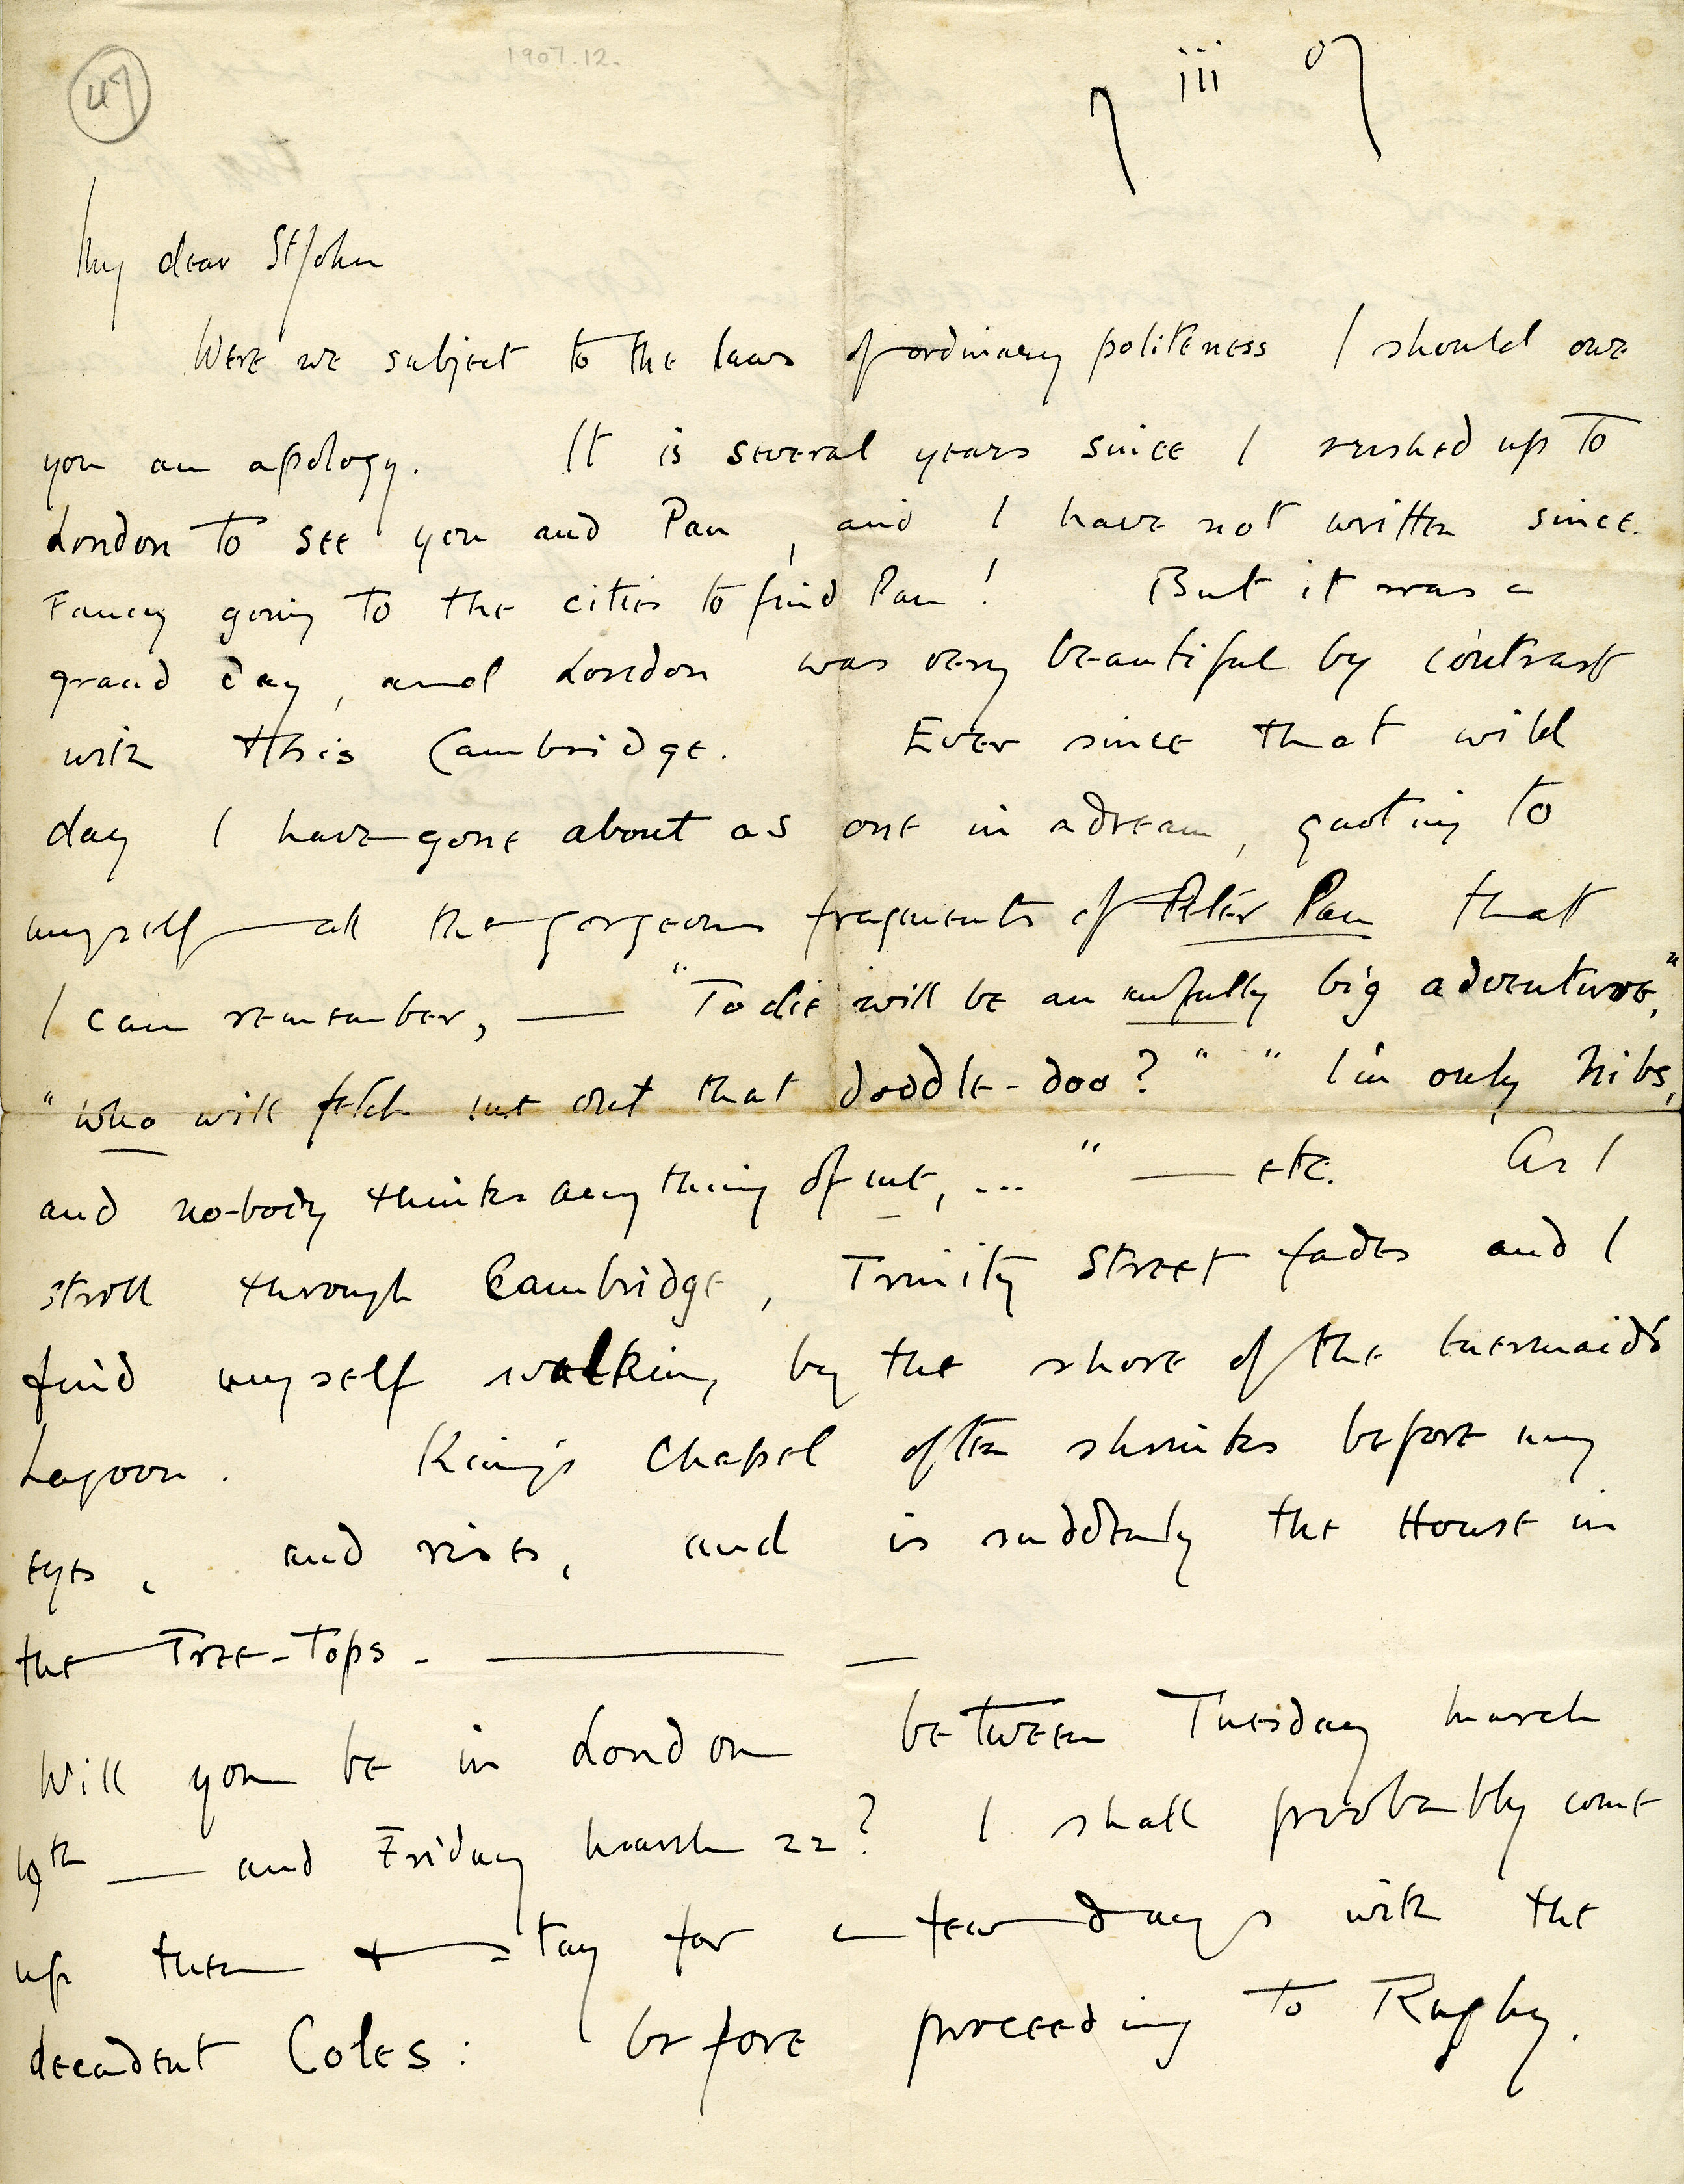 47
1907.12.
7 iii 07
My dear St John
Were we subject to the laws of ordinary politeness I should owe
you an apology. It is several years since I rushed up to
London to see you and Pan, and I have not written since.
Fancy going to the cities to find Pan! But it was a
grand day, and London was very beautiful by contrast
with this Cambridge. Ever since that wild
day I have gone about as one in a dream, quoting to
myself all the gorgeous fragments of Peter Pan that
I can remember, — "To die will be an awfully big adventure,"
"Who will fetch me out that doodle-doo?" "I'm only Nibs,
and no-body thinks anything of me, ..." — etc. As I
stroll through Cambridge, Trinity Street fades and I
find myself walking by the shore of the Mermaid's
Lagoon. King's Chapel often shrinks before my
eyes, and rises, and is suddenly the House in
the Tree-Tops. — —
Will you be in London between Tuesday March
19th — and Friday March 22? I shall probably come
up then & stay for a few days with the
decadent Coles: before proceeding to Rugby.